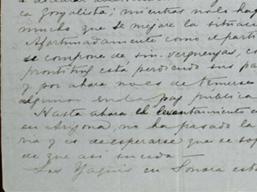 ca porfirista; mientras no lo hag
mucho que se mejore la situaci
Afortunadamente como el parti
se compone de sin-vergüenzas, co
prontitud esta perdiendo sus pa
y por ahora no es de temerse
algunos en la paz publica
Hasta ahora el levantamiento e
en Arizona, no ha pasado la
ra y es de esperarse que se sof
de que asi suceda.
Los Yaquis en Sonora est